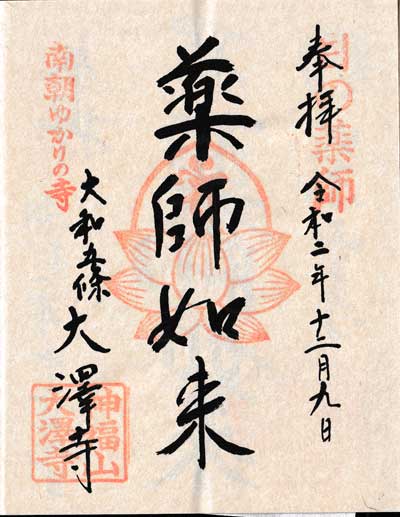 奉拝 令和二年十二月九日
目の薬師
薬師如来
南朝ゆかりの寺
大和五條 大澤寺
神福山
大澤寺